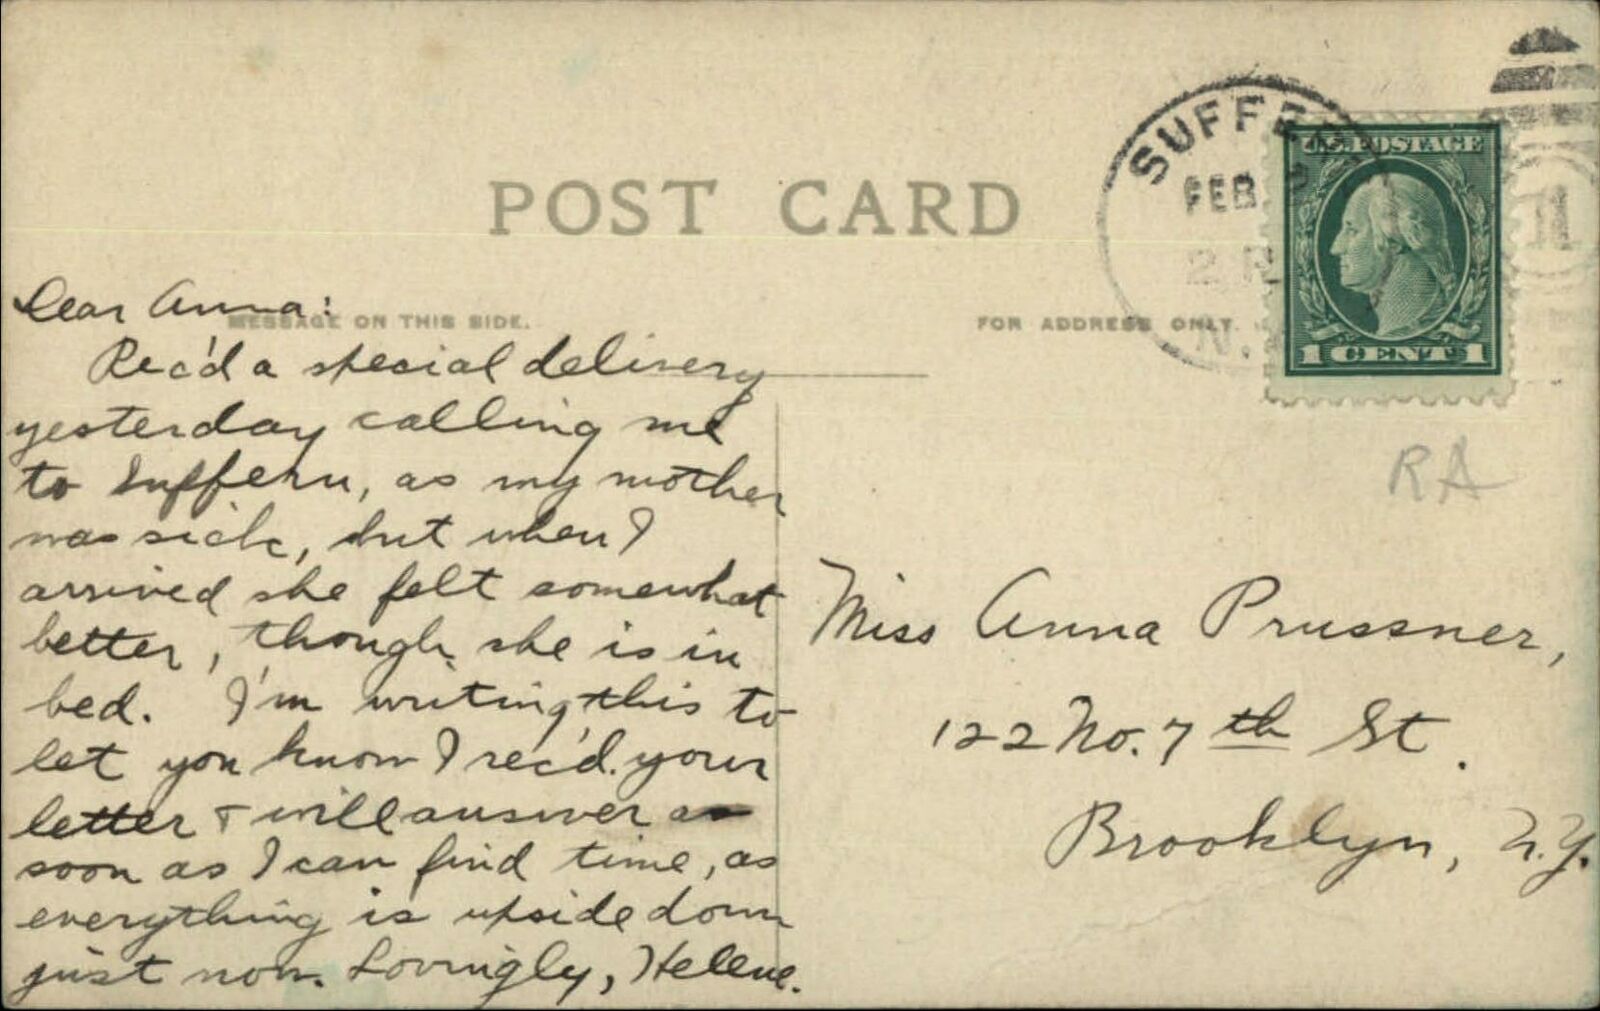 POST CARD
SUFFERN
FEB
2 P
N.
U.S. POSTAGE
1 CENT 1
11
MESSAGE ON THIS SIDE.
FOR ADDRESS ONLY.
RA
Dear Anna:
Rec'd a special delivery
yesterday calling me
to Suffern, as my mother
was sick, but when I
arrived she felt somewhat
better, though she is in
bed. I'm writing this to
let you know I rec'd. your
letter & will answer as
soon as I can find time, as
everything is upside down
just now. Lovingly, Helene.
Miss Anna Prussner,
122 No. 7th St.
Brooklyn, N.Y.